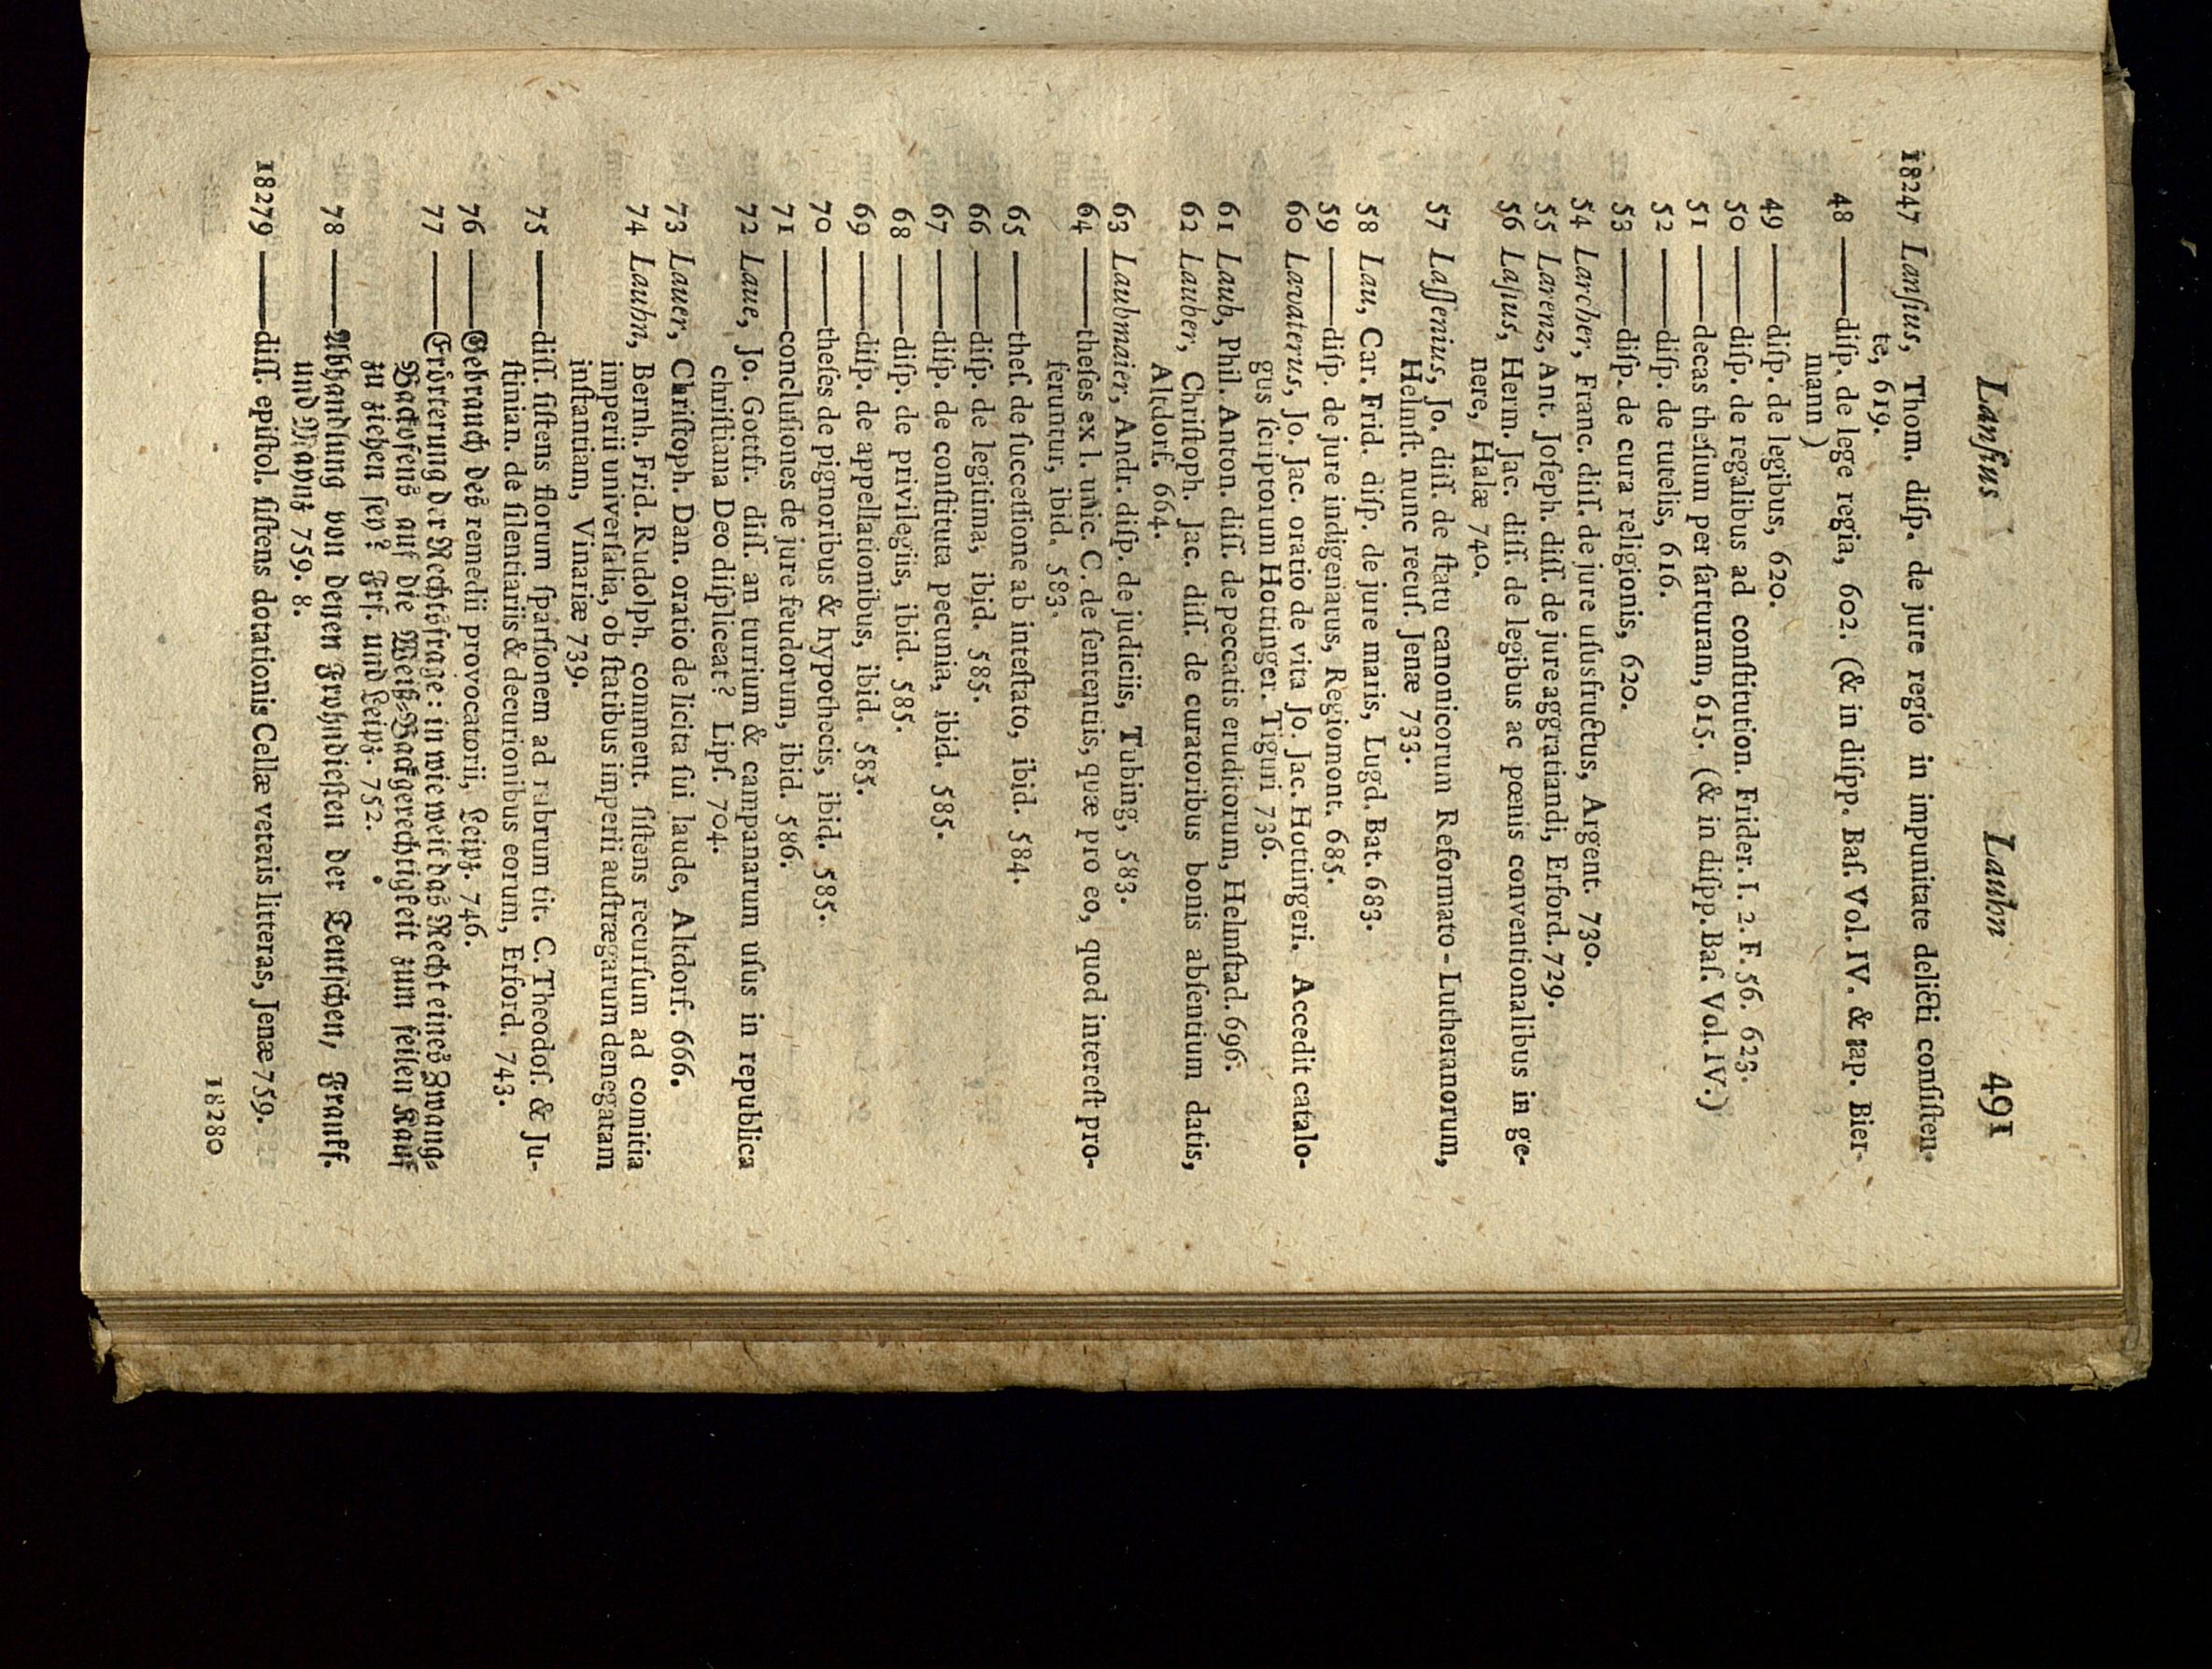 Lanſius Lauhn 491
18247 Lanſius, Thom. diſp. de jure regio in impunitate delicti conſiſten-
te, 619.
48 —— diſp. de lege regia, 602. (& in diſpp. Baſ. Vol. IV. & ap. Bier-
mann)
49 —— diſp. de legibus, 620.
50 —— diſp. de regalibus ad conſtitution. Frider. I. 2. F. 56. 623.
51 —— decas theſium per ſarturam, 615. (& in diſpp. Baſ. Vol. IV.)
52 —— diſp. de tutelis, 616.
53 —— diſp. de cura religionis, 620.
54 Larcher, Franc. diſſ. de jure uſusfructus, Argent. 730.
55 Larenz, Ant. Joſeph. diſſ. de jure aggratiandi, Erford. 729.
56 Laſius, Herm. Jac. diſſ. de legibus ac pœnis conventionalibus in ge-
nere, Halæ 740.
57 Laſſenius, Jo. diſſ. de ſtatu canonicorum Reformato-Lutheranorum,
Helmſt. nunc recuſ. Jenæ 733.
58 Lau, Car. Frid. diſp. de jure maris, Lugd. Bat. 683.
59 —— diſp. de jure indigenatus, Regiomont. 685.
60 Lavaterus, Jo. Jac. oratio de vita Jo. Jac. Hottingeri. Accedit catalo-
gus ſcriptorum Hottinger. Tiguri 736.
61 Laub, Phil. Anton. diſſ. de peccatis eruditorum, Helmſtad. 696.
62 Lauber, Chriſtoph. Jac. diſſ. de curatoribus bonis abſentium datis,
Altdorf. 664.
63 Laubmaier, Andr. diſp. de judiciis, Tubing, 583.
64 —— theſes ex l. unic. C. de ſententiis, quæ pro eo, quod intereſt pro-
feruntur, ibid. 583.
65 —— theſ. de ſucceſſione ab inteſtato, ibid. 584.
66 —— diſp. de legitima, ibid. 585.
67 —— diſp. de conſtituta pecunia, ibid. 585.
68 —— diſp. de privilegiis, ibid. 585.
69 —— diſp. de appellationibus, ibid. 585.
70 —— theſes de pignoribus & hypothecis, ibid. 585.
71 —— concluſiones de jure feudorum, ibid. 586.
72 Laue, Jo. Gottfr. diſſ. an turrium & campanarum uſus in republica
chriſtiana Deo diſpliceat? Lipſ. 704.
73 Lauer, Chriſtoph. Dan. oratio de licita ſui laude, Altdorf. 666.
74 Lauhn, Bernh. Frid. Rudolph. comment. ſiſtens recurſum ad comitia
imperii univerſalia, ob ſtatibus imperii auſtrægarum denegatam
inſtantiam, Vinariæ 739.
75 —— diſſ. ſiſtens florum ſparſionem ad rubrum tit. C. Theodoſ. & Ju-
ſtinian. de ſilentiariis & decurionibus eorum, Erford. 743.
76 —— Gebrauch des remedii provocatorii, Leipz. 746.
77 —— Erörterung der Rechtsfrage: in wie weit das Recht eines Zwang-
Backofens auf die Weiß-Backgerechtigkeit zum feilen Kauf
zu ziehen ſey? Frf. und Leipz. 752.
78 —— Abhandlung von denen Frohndieſten der Teutſchen, Franff.
und Maynz 759. 8.
18279 —— diſſ. epiſtol. ſiſtens dotationis Cellæ veteris litteras, Jenæ 759.
18280